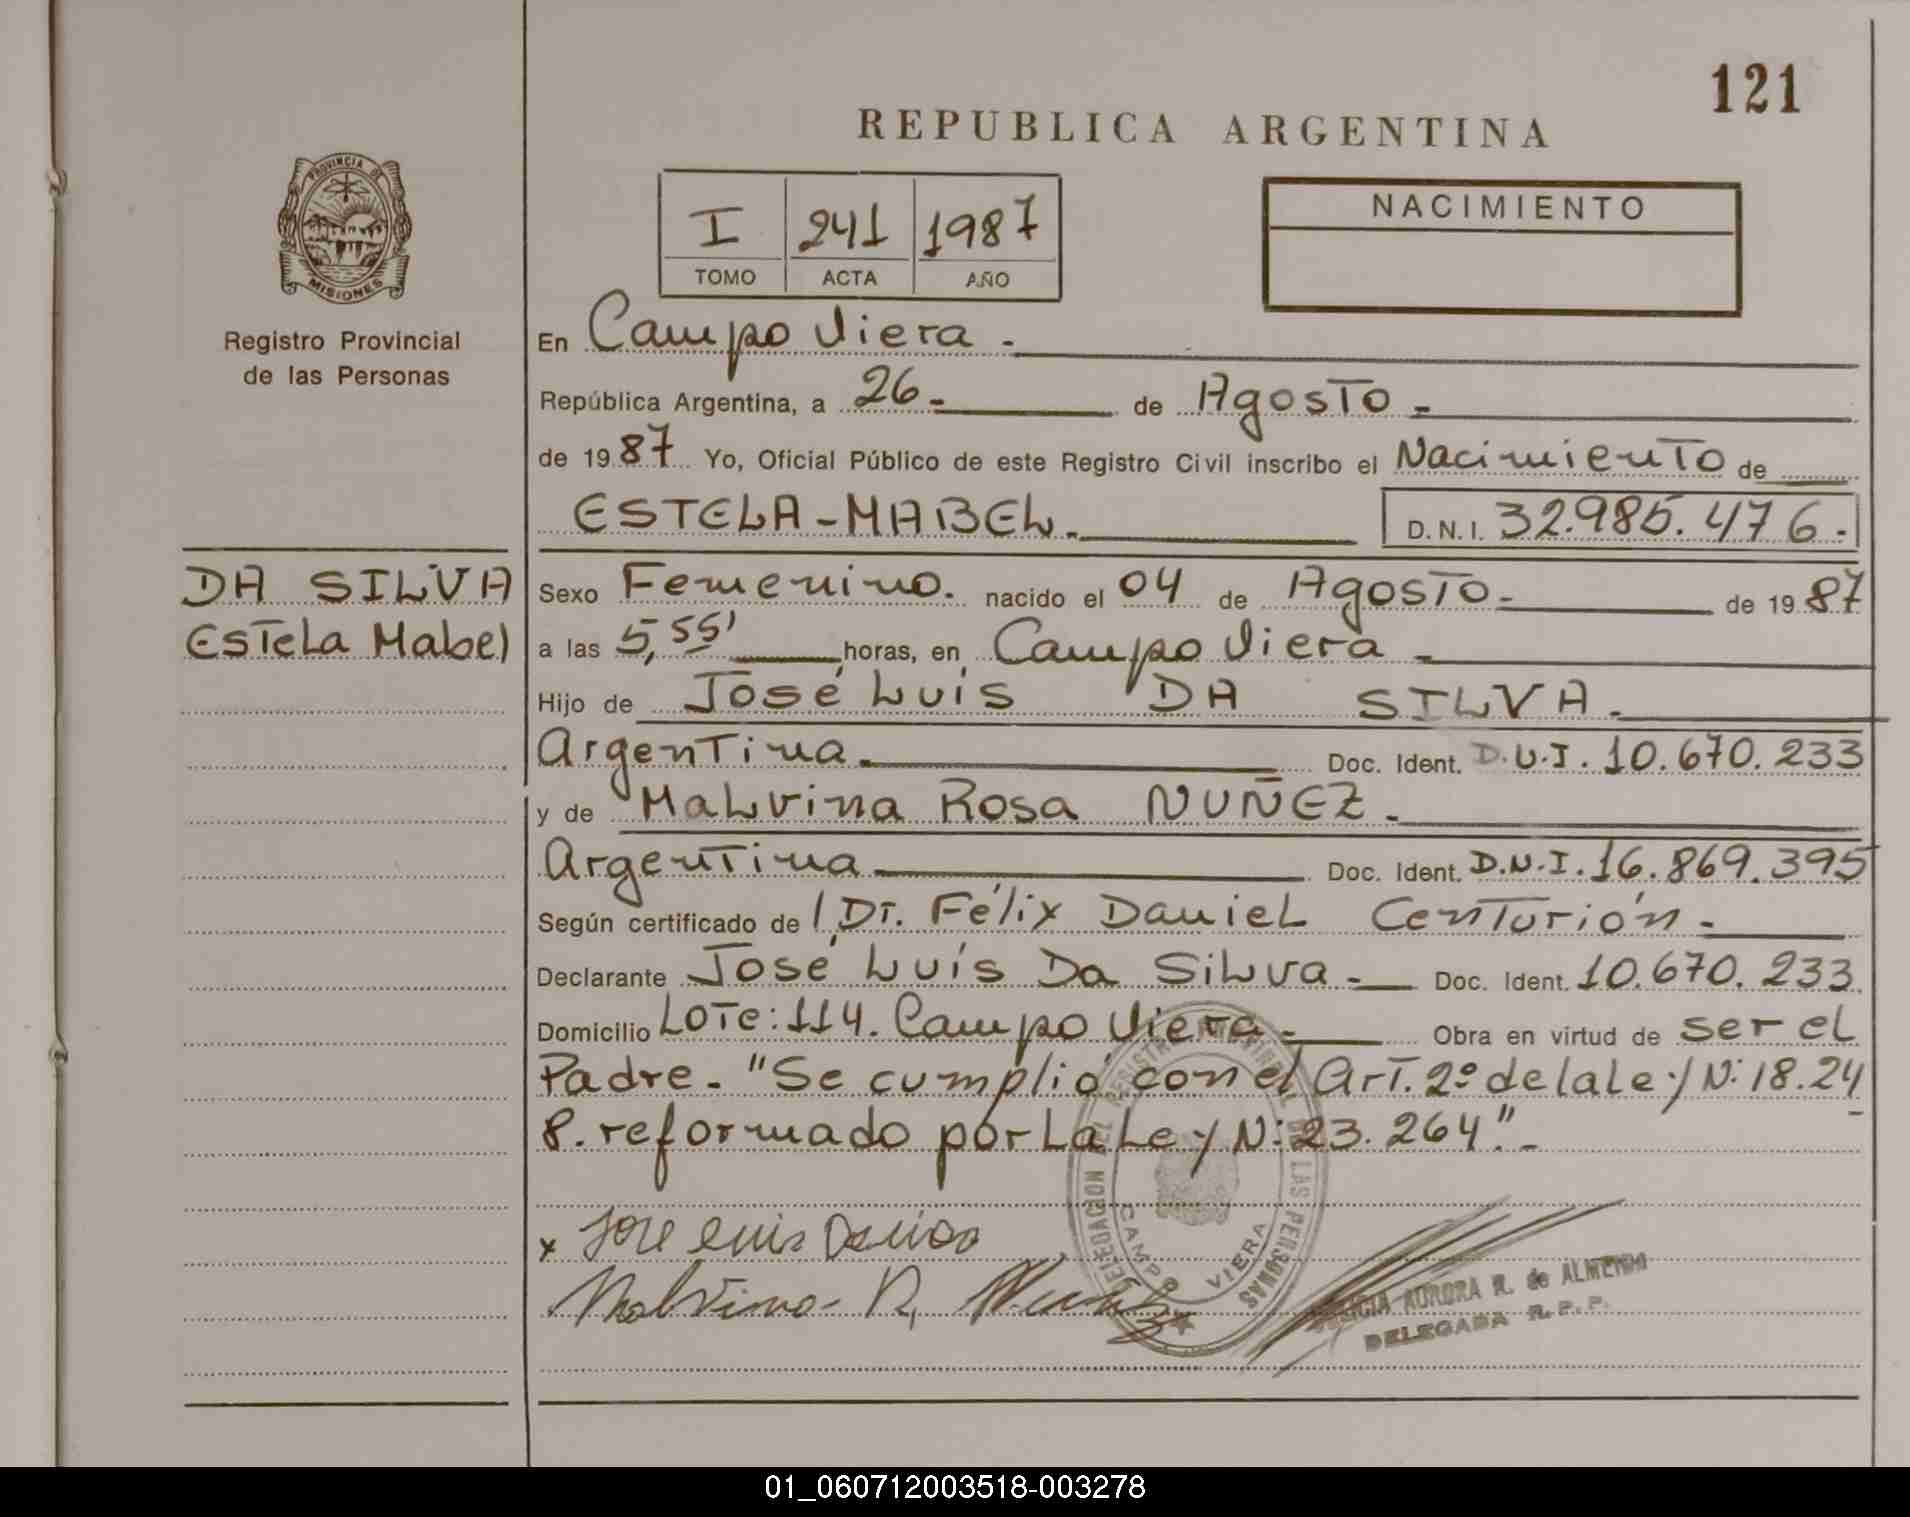 121
REPUBLICA ARGENTINA
PROVINCIA DE
MISIONES
Registro Provincial
de las Personas
I 241 1987
TOMO ACTA AÑO
NACIMIENTO
En Campo Viera.
República Argentina, a 26 de Agosto
de 1987 Yo, Oficial Público de este Registro Civil inscribo el Nacimiento de
ESTELA-MABEL. D.N.I. 32.985.476.
DA SILVA
Estela Mabel
Sexo Femenino. nacido el 04 de Agosto de 1987
a las 5,55' horas, en Campo Viera
Hijo de José Luis DA SILVA.
Argentina. Doc. Ident. D.N.I. 10.670.233
y de Malvina Rosa NUÑEZ.
Argentina Doc. Ident. D.N.I. 16.869.395
Según certificado de / Dr. Félix Daniel Centurión
Declarante José Luís Da Silva Doc. Ident. 10.670.233
Domicilio Lote: 114. Campo Viera Obra en virtud de ser el
Padre. "Se cumplió con el Art. 2º de la Ley N: 18.24
8. reformado por la Ley N: 23.264".
DELEGACION DEL REGISTRO PROVINCIAL DE LAS PERSONAS
CAMPO VIERA
x Jose Luis Da
Malvina R, Nuñez
AURORA R. de ALMEIDA
DELEGADA R.P.P.
01_060712003518-003278